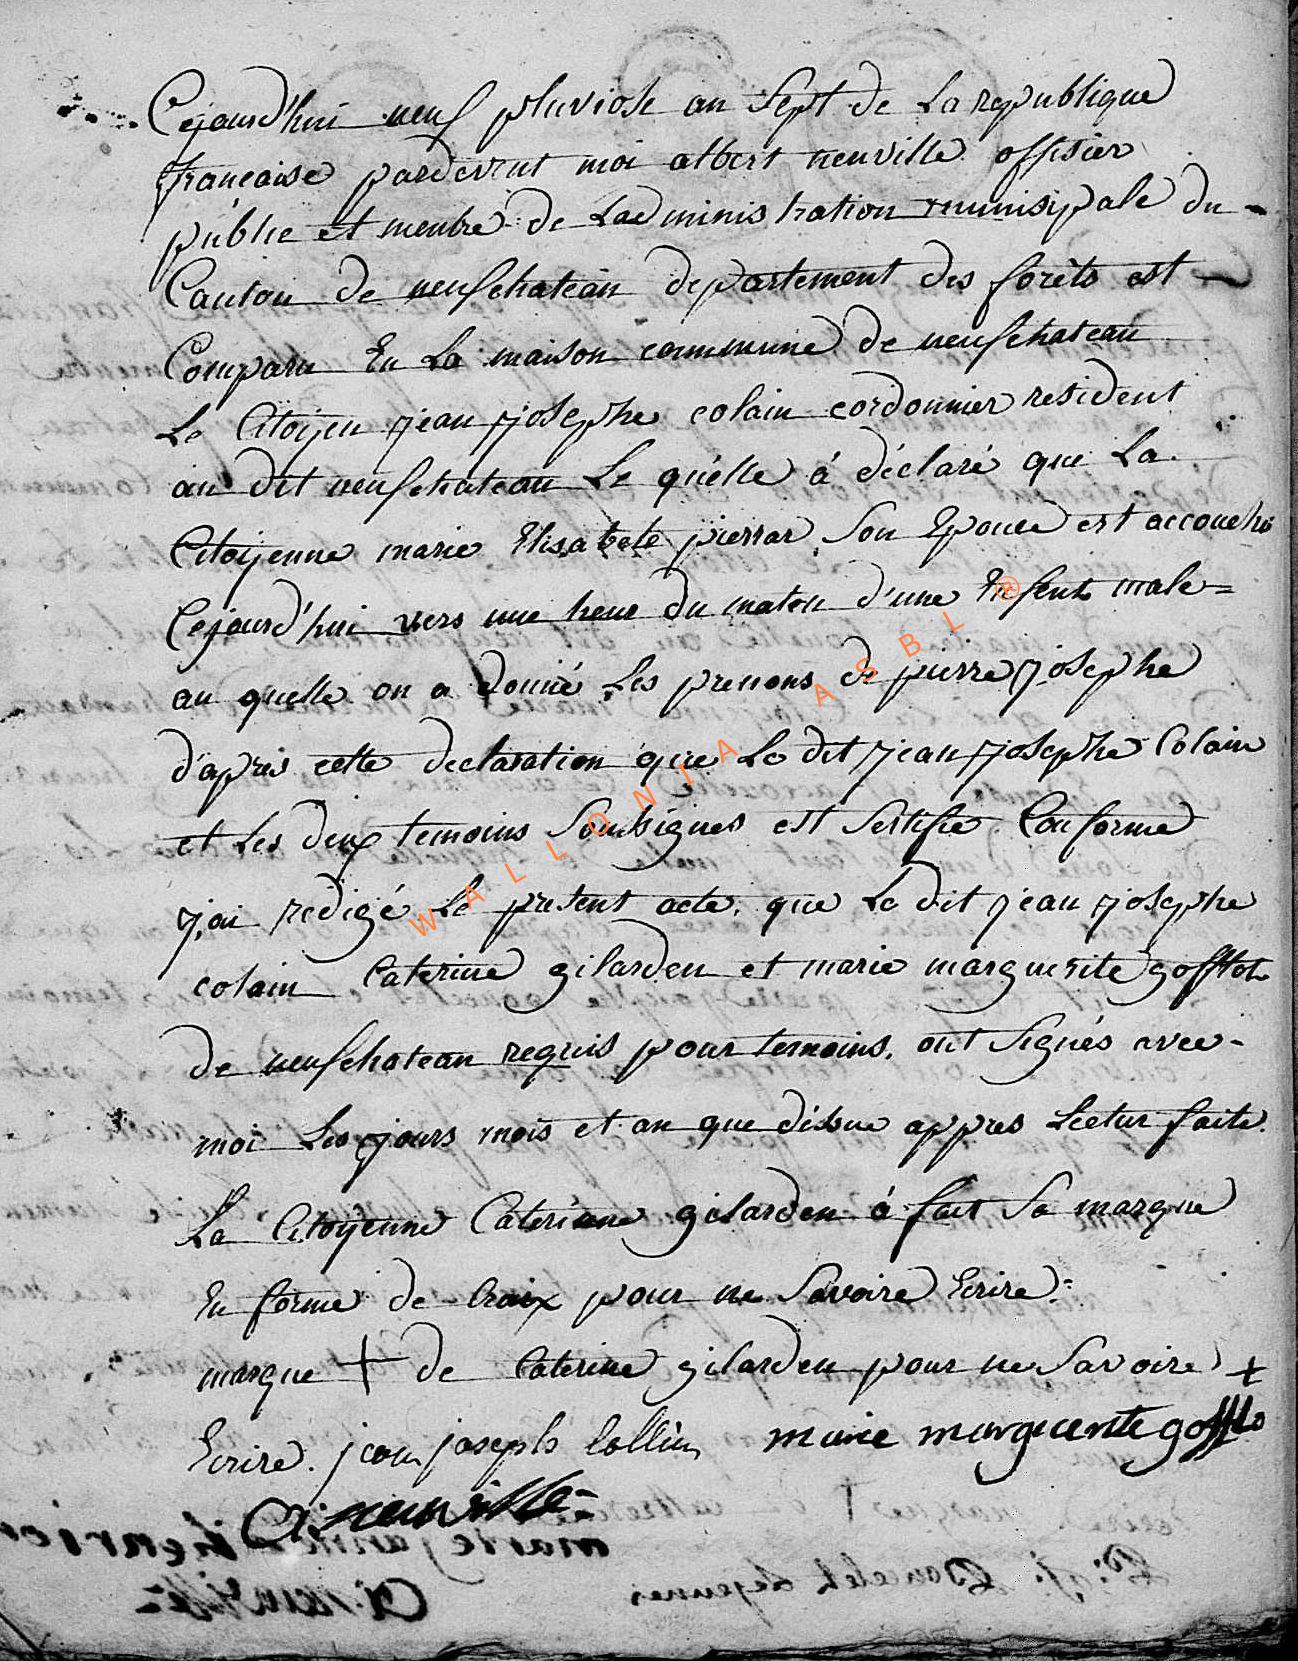 Cejourd'hui neuf pluviose an Sept de La republique
francaise pardevent moi albert neuville offisier
publie et menbre de Ladministration munisipale du -
Canton de neufchatéau departement des foréts est -
Comparu En La maison commune de neufchateau
Le Citoyen jean josephe colain cordonnier resident
au dit neufchateau Le quélle á déclaré que La
Citoyenne marie Elisabete pierrar Son Epouce est accouché
Cejourd'hui vers une heur du maton d'une Enfent male =
au quelle on a donné Les prenons de pierre josephe
d'aprés cette declaration que Le dit jean josephe Colain
et Les deux temoins Soubsignes est Sertifie Conforme
j,ai redigé Le present acte, que Le dit jean josephe
colain Caterine gilarden et marie marguerite gofflot
de neufchateau requis pour temoins, ont Signés avec -
moi Les jours mois et an que dissue appres Lectur faite.
La Citoyenne Caterinne gilarden á fait Sa marque
En forme de Croix pour ne Savoire Ecrire :
marque + de Caterine gilarden pour ne Savoire +
Ecrire. jean joseph Collin marie marguerite gofflo
A: neuville =
WALLONIA ASBL ®